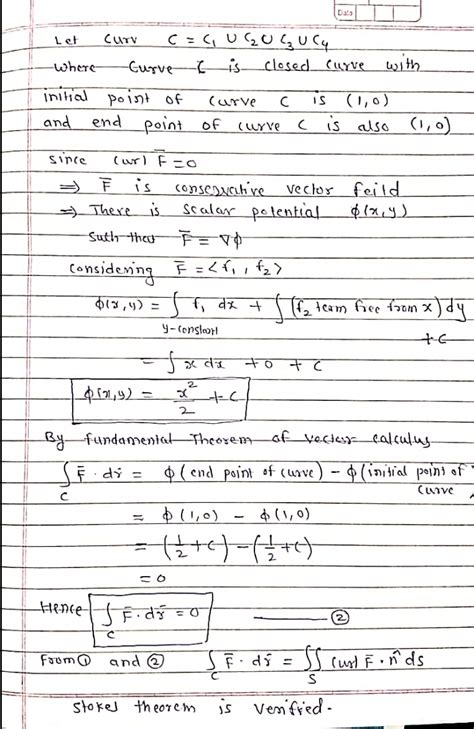 Date
Let curv C = C₁ ∪ C₂ ∪ C₃ ∪ C₄
where Curve C is closed curve with
initial point of curve C is (1,0)
and end point of curve C is also (1,0)
since curl F̄ = 0
⇒ F̄ is conservative vector feild
⇒ There is scalar potential ϕ(x,y)
Such that F̄ = ∇ϕ
Considering F̄ = <f₁, f₂>
ϕ(x,y) = ∫ f₁ dx + ∫ (f₂ team free from x) dy
y-constant + C
= ∫ x dx + 0 + C
ϕ(x,y) = x²/2 + C
By fundamental Theorem of vector calculus
∫_C F̄ · dr̄ = ϕ (end point of curve) - ϕ (initial point of
curve
= ϕ(1,0) - ϕ(1,0)
= (1/2 + C) - (1/2 + C)
= 0
Hence ∫_C F̄ · dr̄ = 0 ——— ②
From ① and ② ∫_C F̄ · dr̄ = ∬_S curl F̄ · n̂ ds
Stokes theorem is verified.